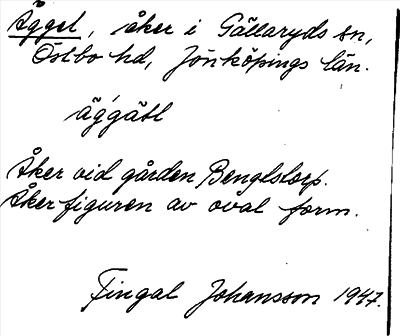 Äggel, åker i Gällaryds sn,
Östbo hd, Jönköpings län.
äggätl
Åker vid gården Bengtstorp.
Åkerfiguren av oval form.
Fingal Johansson 1947.